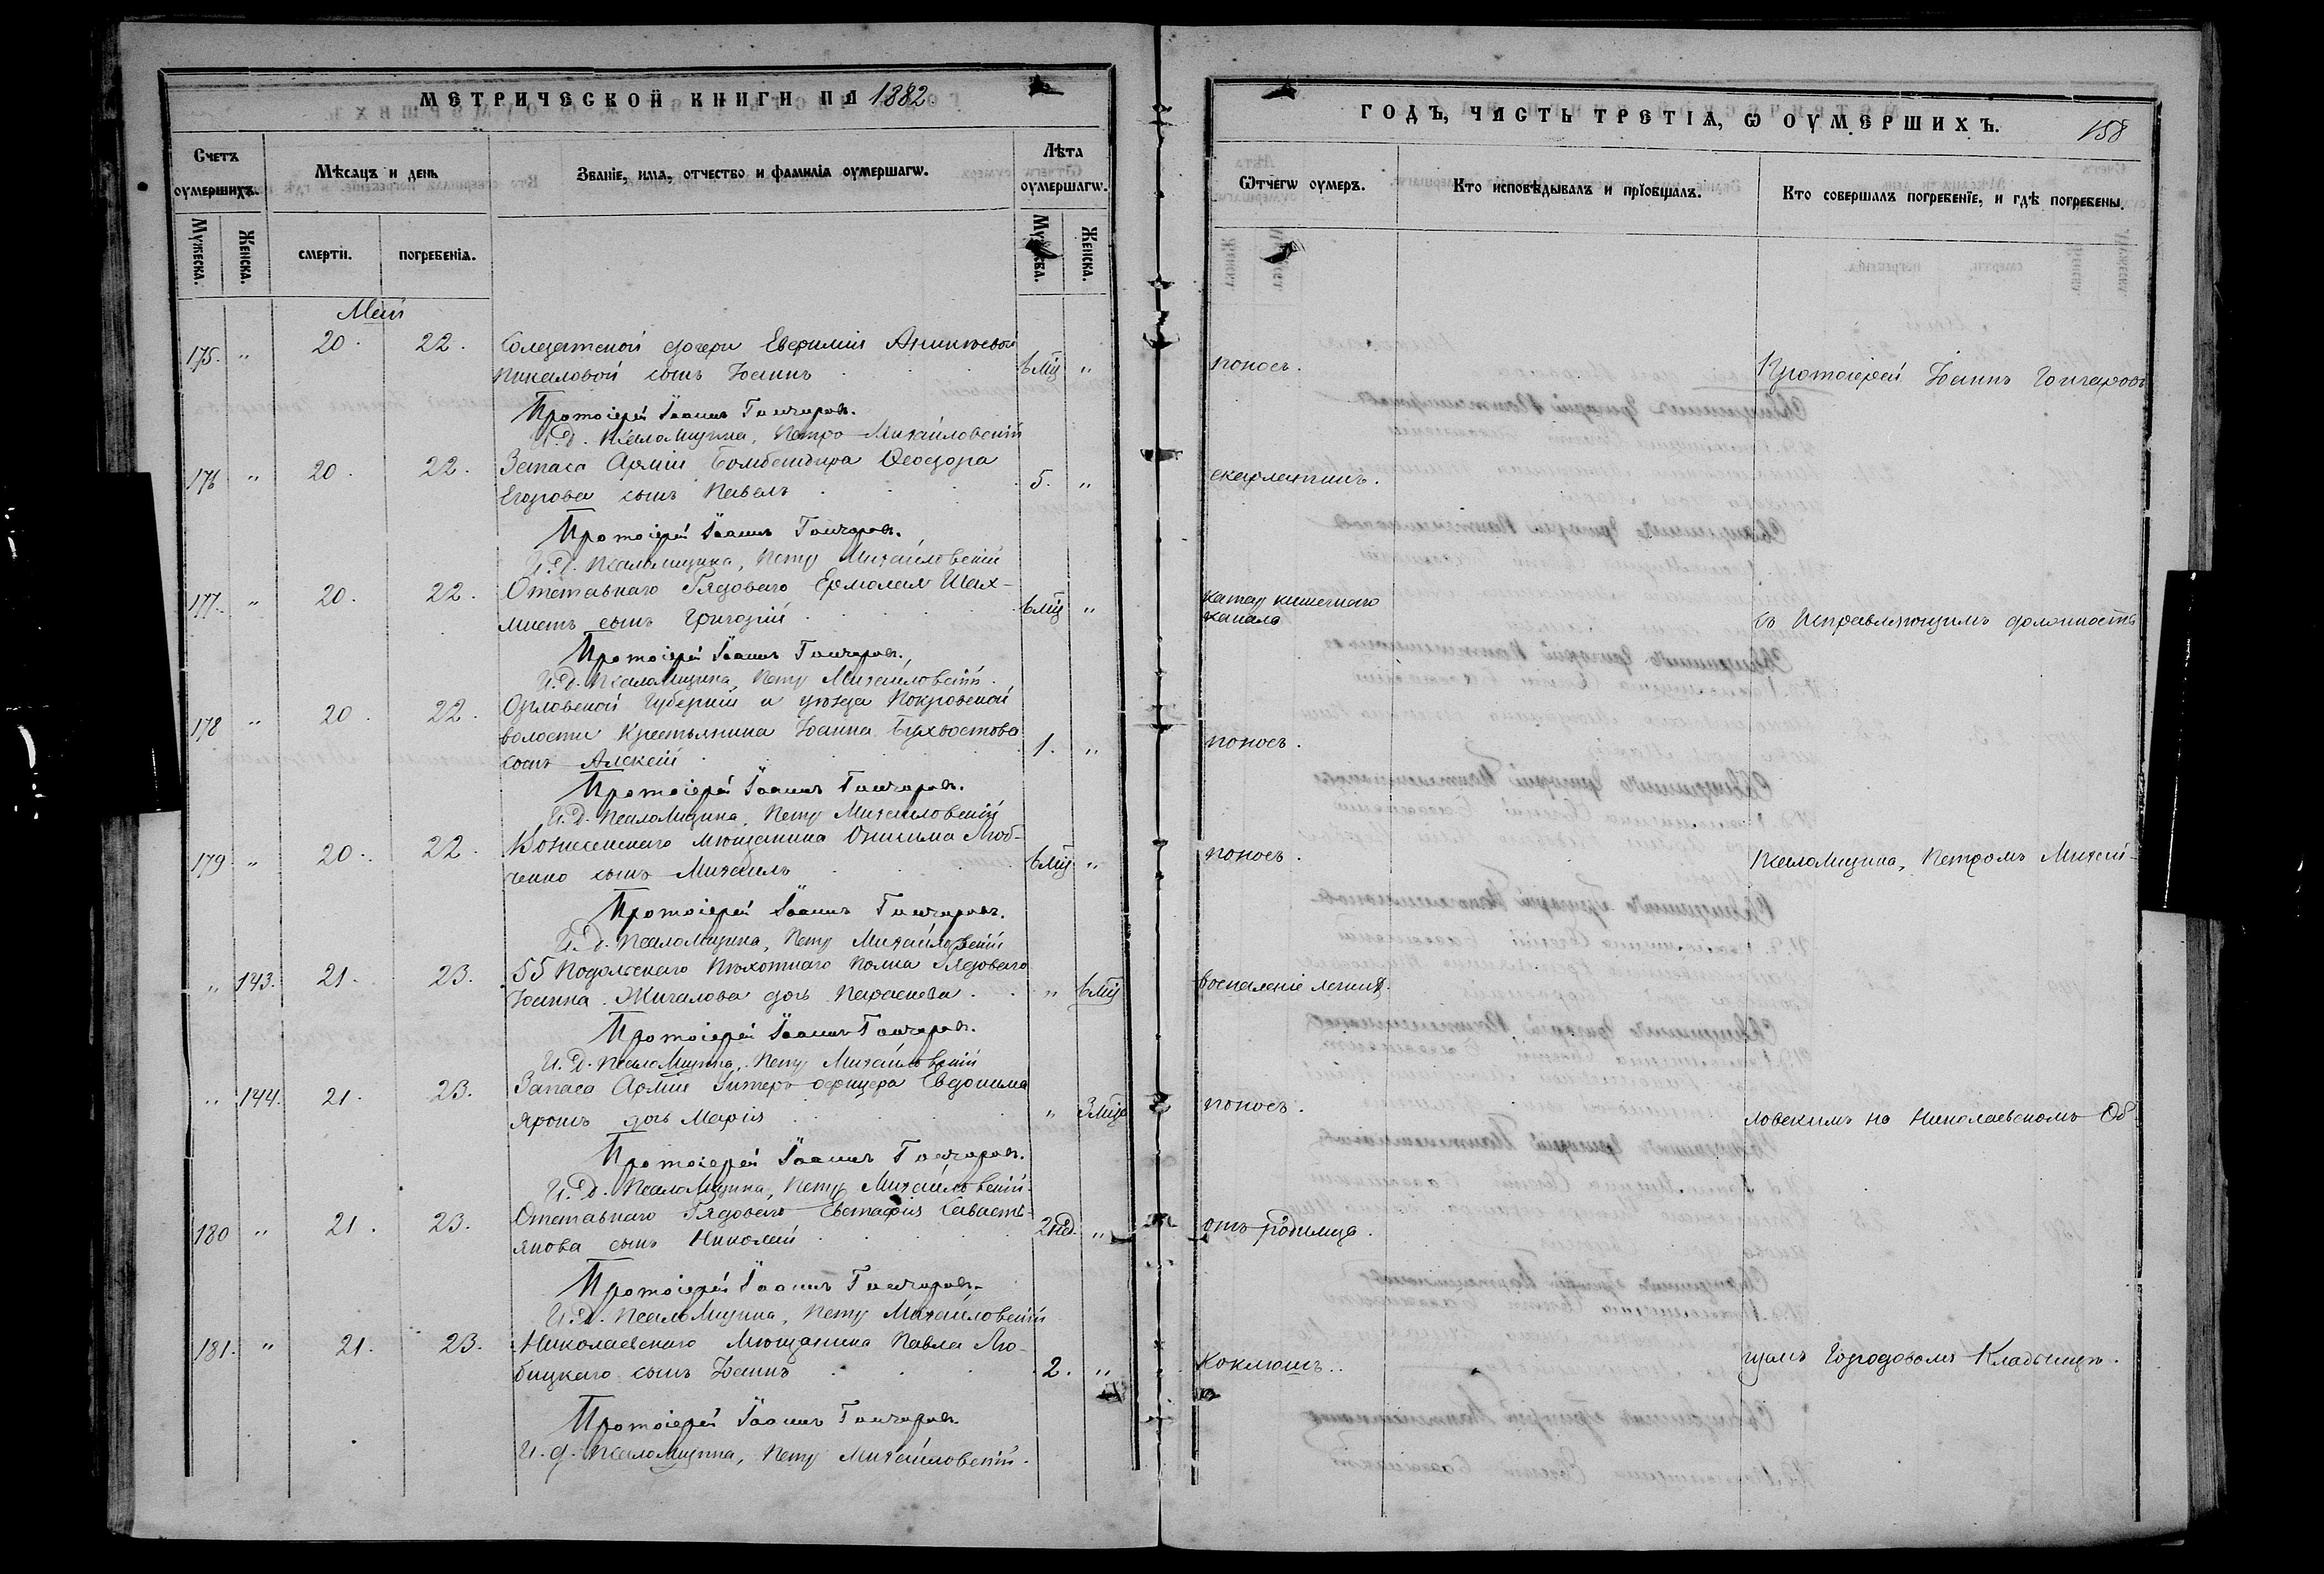 МЕТРИЧЕСКОЙ КНИГИ НА 1882
Счетъ оумершихъ.
Мѣсяцъ и день
Званіе, имя, отчество и фамилія оумершагѡ.
Лѣта оумершагѡ.
Мужеска. Женска. смерти. погребенія. Мужеска. Женска.
Май
175. " 20. 22. Солдатской дочери Евфиміи Аникіевой
Пикаловой сынъ Іоаннъ 6 мц "
Протоіерей Іоаннъ Гончаровъ.
И. д. Псаломщика, Петръ Михайловскій
176 " 20. 22. Запаса Арміи Бомбандира Ѳеодора
Егорова сынъ Павелъ 5. "
Протоіерей Іоаннъ Гончаровъ.
И. д. Псаломщика, Петръ Михайловскій
177. " 20. 22. Отставнаго Рядоваго Ермолая Шах-
матъ сынъ Григорій 6 мц "
Протоіерей Іоаннъ Гончаровъ.
И. д. Псаломщика, Петръ Михайловскій.
178 " 20. 22. Орловской Губерніи и уѣзда Покровской
волости Крестьянина Іоанна Бухвостова
сынъ Алексій 1. "
Протоіерей Іоаннъ Гончаровъ.
И. д. Псаломщика, Петръ Михайловскій
179 " 20. 22. Вознесенскаго мѣщанина Онисима Люб-
ченко сынъ Михаилъ 6 мц "
Протоіерей Іоаннъ Гончаровъ.
И. д. Псаломщика, Петръ Михайловскій
" 143. 21. 23. 55 Подольскаго Пѣхотнаго Полка Рядоваго
Іоанна Жигалова дочь Параскева " 6 мц
Протоіерей Іоаннъ Гончаровъ.
И. д. Псаломщика, Петръ Михайловскій
" 144. 21. 23. Запаса Арміи Унтеръ-офицера Евдокима
Ярошъ дочь Марія " 3 мца
Протоіерей Іоаннъ Гончаровъ.
И. д. Псаломщика, Петръ Михайловскій.
180 " 21. 23. Отставнаго Рядоваго Евстафія Савасть-
янова сынъ Николай 2 нед. "
Протоіерей Іоаннъ Гончаровъ.
И. д. Псаломщика, Петръ Михайловскій
181. " 21. 23. Николаевскаго Мѣщанина Павла Лю-
бицкаго сынъ Іоаннъ 2. "
Протоіерей Іоаннъ Гончаровъ.
И. д. Псаломщика, Петръ Михайловскій.
ГОДЪ, ЧАСТЬ ТРЕТІЯ, Ѡ ОУМЕРШИХЪ.
158
Ѿтчегѡ оумеръ.
Кто исповѣдывалъ и пріобщалъ.
Кто совершалъ погребеніе, и гдѣ погребены.
поносъ. Протоіерей Іоаннъ Гончаровъ
скарлатинъ.
катар кишечнаго
канала съ Исправляющимъ должность
поносъ.
поносъ. Псаломщика, Петромъ Михай-
воспаленіе легких.
поносъ. ловскимъ на Николаевскомъ Об-
отъ родимца.
Коклюшъ. щемъ Городовомъ Кладбищѣ.